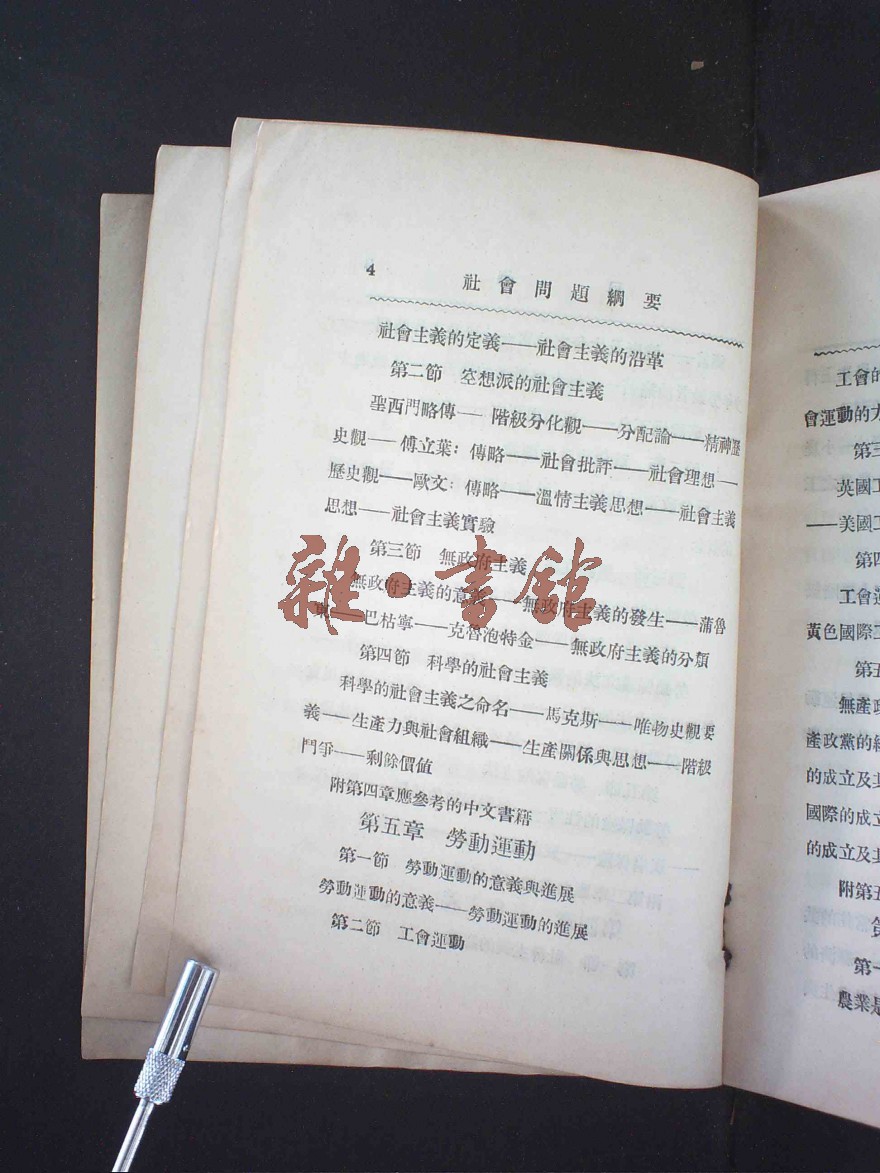 4
社會問題綱要
社會主義的定義——社會主義的沿革
第二節 空想派的社會主義
聖西門略傳——階級分化觀——分配論——精神歷
史觀——傅立葉：傳略——社會批評——社會理想—
歷史觀——歐文：傳略——溫情主義思想——社會主義
思想——社會主義實驗
第三節 無政府主義
無政府主義的意義——無政府主義的發生——蒲魯
——巴枯寧——克魯泡特金——無政府主義的分類
第四節 科學的社會主義
科學的社會主義之命名——馬克斯——唯物史觀要
義——生產力與社會組織——生產關係與思想——階級
鬥爭——剩餘價值
附第四章應參考的中文書籍
第五章 勞動運動
第一節 勞動運動的意義與進展
勞動運動的意義——勞動運動的進展
第二節 工會運動
雜·書館
工會的
會運動的
第三
英國工
——美國工
第四
工會運
黃色國際工
第五
無產政
產政黨的
的成立及其
國際的成立
的成立及其
附第五
第
第一
農業是